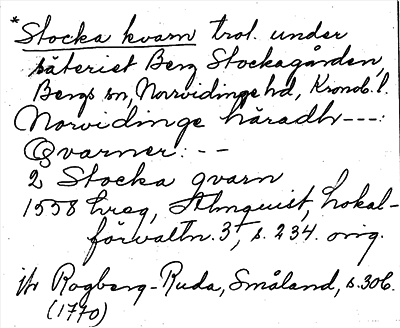 *Stocka kvarn trol. under
säteriet Berg Stockagården,
Bergs sn, Norvidinge hd, Kronob. l.
Norvidinge häradh ---:
Qvarner: --
2 Stocka qvarn
1558 hreg, Almquist, Lokal-
förvaltn. 3, s. 234. orig.
jfr Rogberg-Ruda, Småland, s. 306.
(1770)